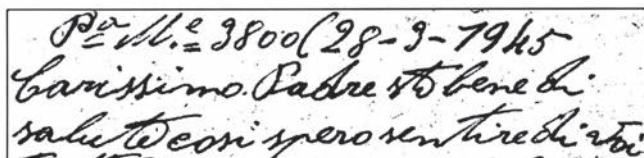 Pa M.e 3800 (28-3-1945
Carissimo Padre sto bene di
salute cosi spero sentire di voi